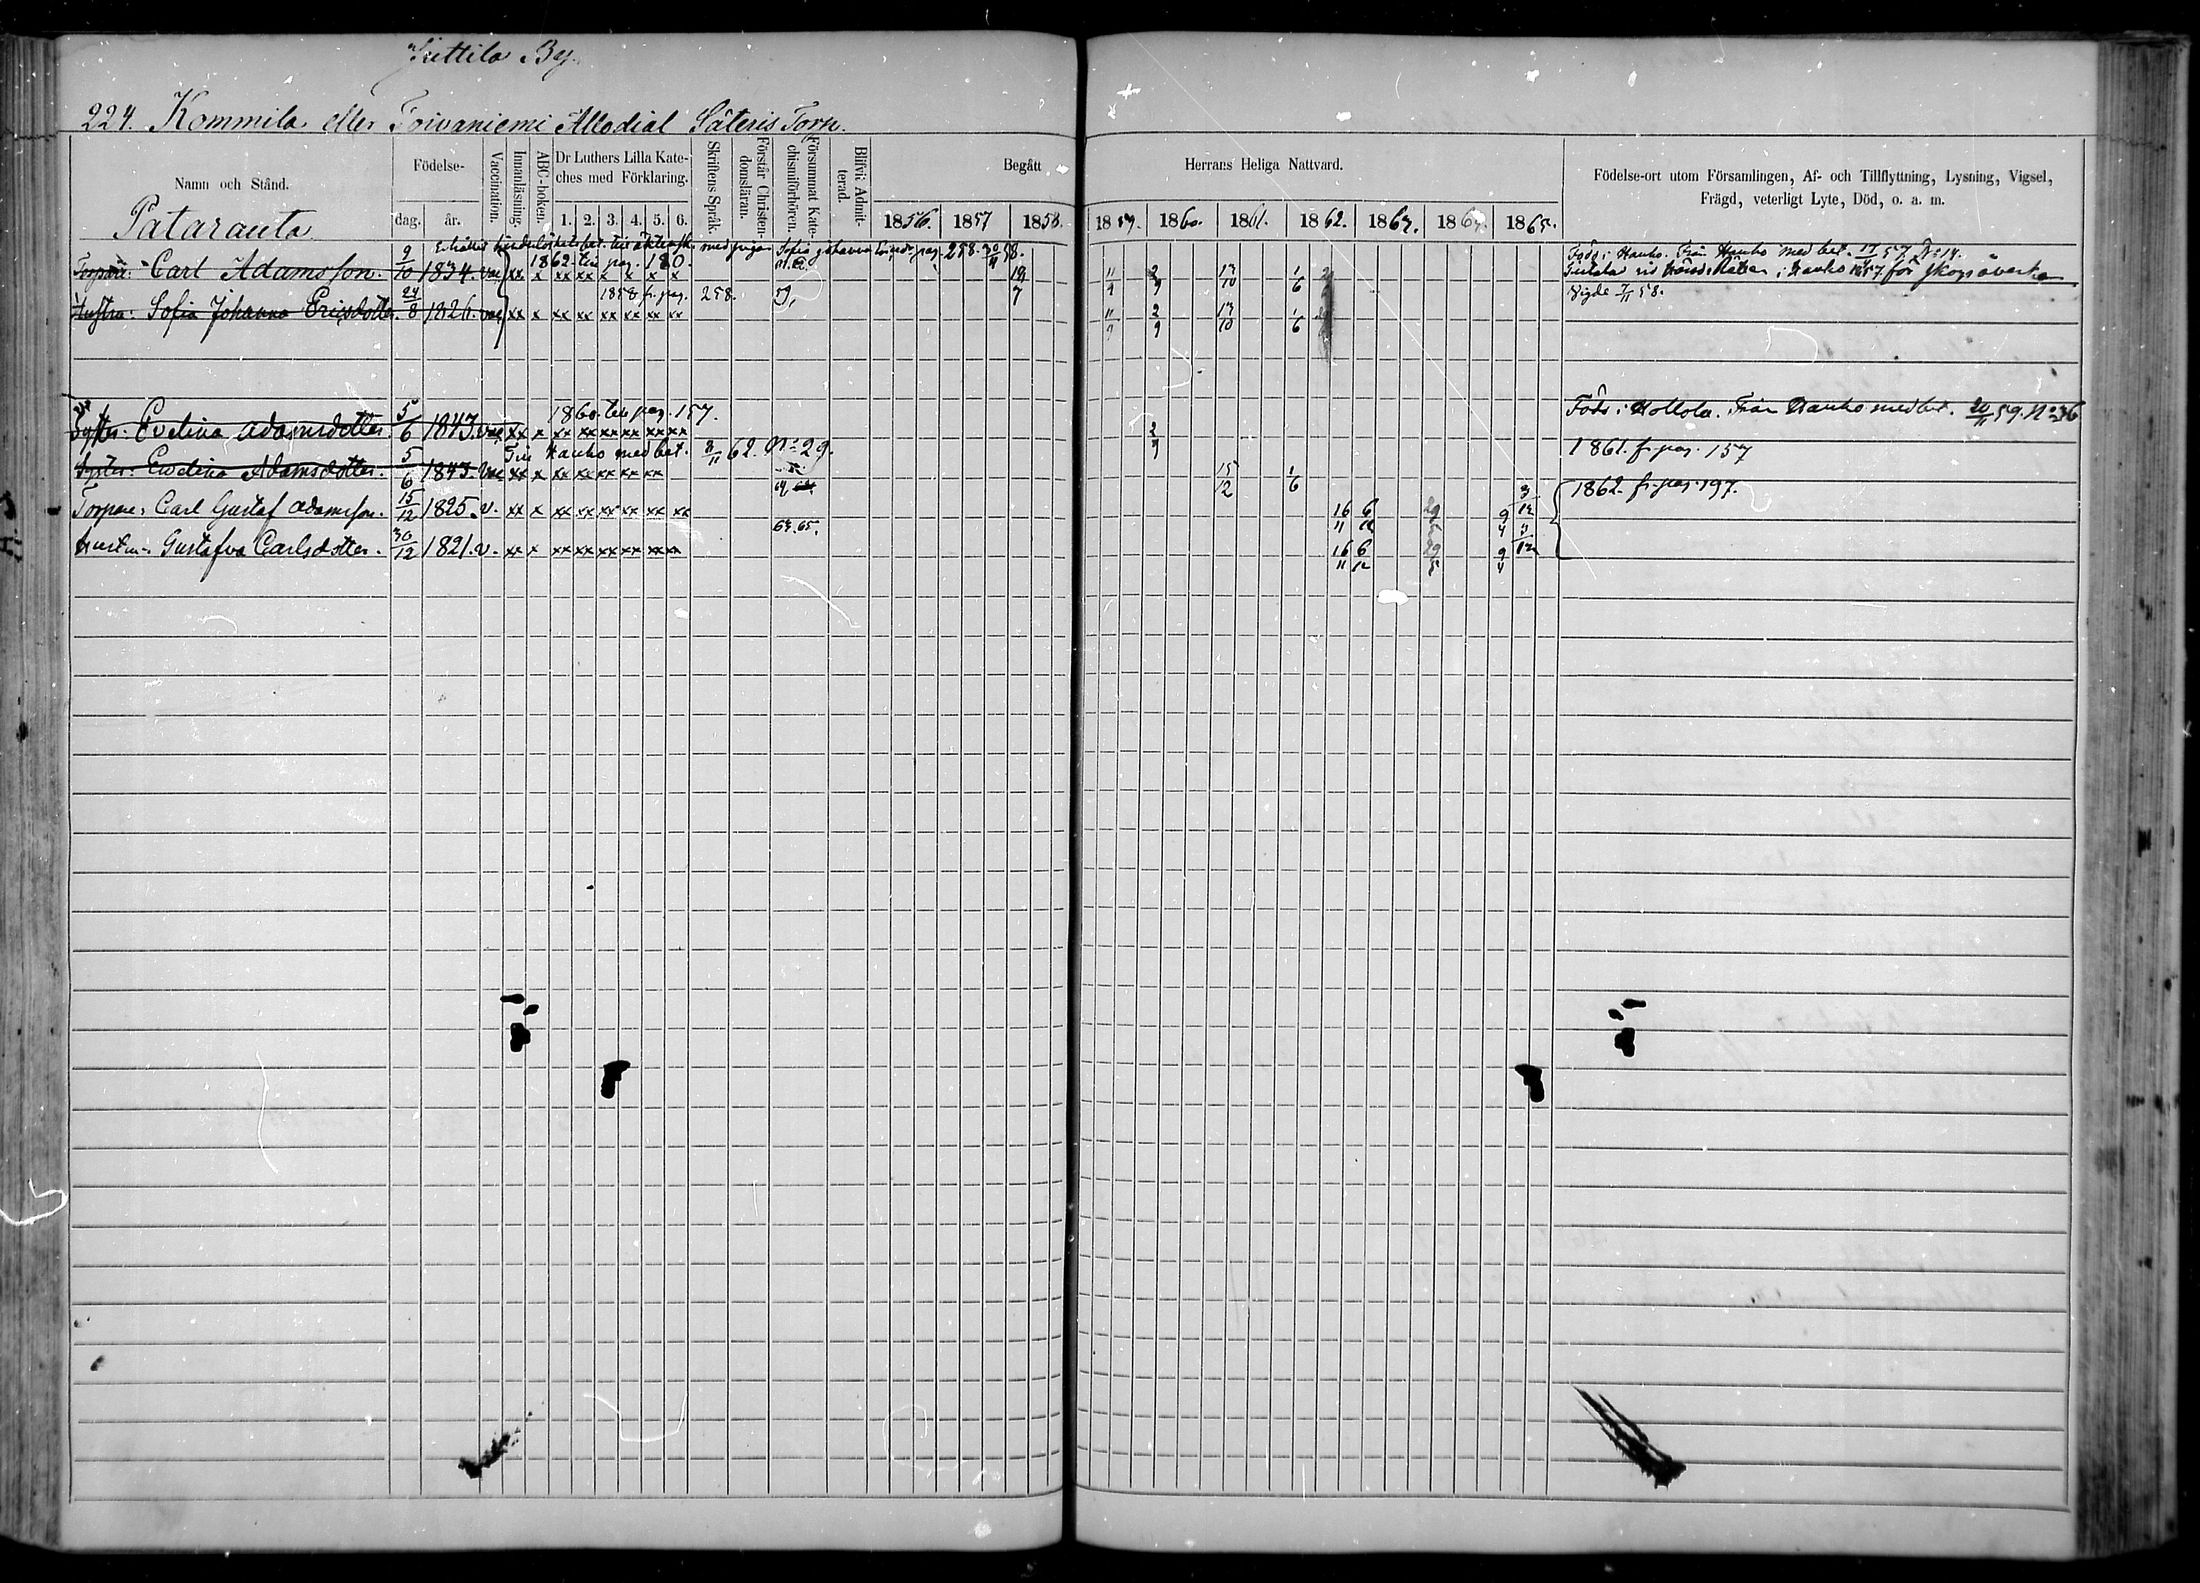 By.
224. Kommila eller Toivaniemi Allodial Säteris Torp.
Namn och Stånd.
Födelse-
dag. år.
Vaccination.
Innanläsning.
ABC-boken.
Dr Luthers Lilla Kate-
ches med Förklaring.
1. 2. 3. 4. 5. 6.
Skriftens Språk.
Förstår Christen-
domsläran.
Försummat Kate-
chismiförhören.
Blifvit Admit-
terad.
Begått
1856. 1857 1858.
Herrans Heliga Nattvard.
1859. 1860. 1861. 1862. 1863. 1864. 1865.
Födelse-ort utom Församlingen, Af- och Tillflyttning, Lysning, Vigsel,
Frägd, veterligt Lyte, Död, o. a. m.
Patarauta
med pigan Sofia Johanna pag. 258. 30/11 58.
1862. till pag. 180.
Carl Adamsson. 9/10 1834. vac xx x xx xx x x x x 19 11/9 2/9 13/10 1/6
Född i Hauho. Från Hauho med bet. 17/11 57. No 14.
i Hauho 1857 för skogsåverkan
1858 fr. pag. 258. 59, 7
Hustru: Sofia Johanna Ericsdotter. 24/8 1826. vac xx x xx xx xx xx xx xx 11/9 2/9 13/10 1/6
Vigde 7/11 58.
1860. till pag. 157.
Syster: Evelina Adamsdotter. 5/6 1843. vac xx x xx xx xx xx xx xx 2/9
Född i Hollola. Från Hauho med bet. 20/11 59. No 36
Till Hauho med bet. 11/11 62. No 29.
Syster: Evelina Adamsdotter. 5/6 1843. vac xx x xx xx xx xx xx 15/12 1/6
1861. fr. pag. 157
Torpare: Carl Gustaf Adamsson. 15/12 1825. v. xx x xx xx xx xx xx xx 16/11 6/12 29/5 9/4 3/12
1862. fr. pag. 197.
64. 65.
Hustru: Gustafva Carlsdotter. 30/12 1821. v. xx x xx xx xx xx xx xx 16/11 6/12 29/5 9/4 3/12